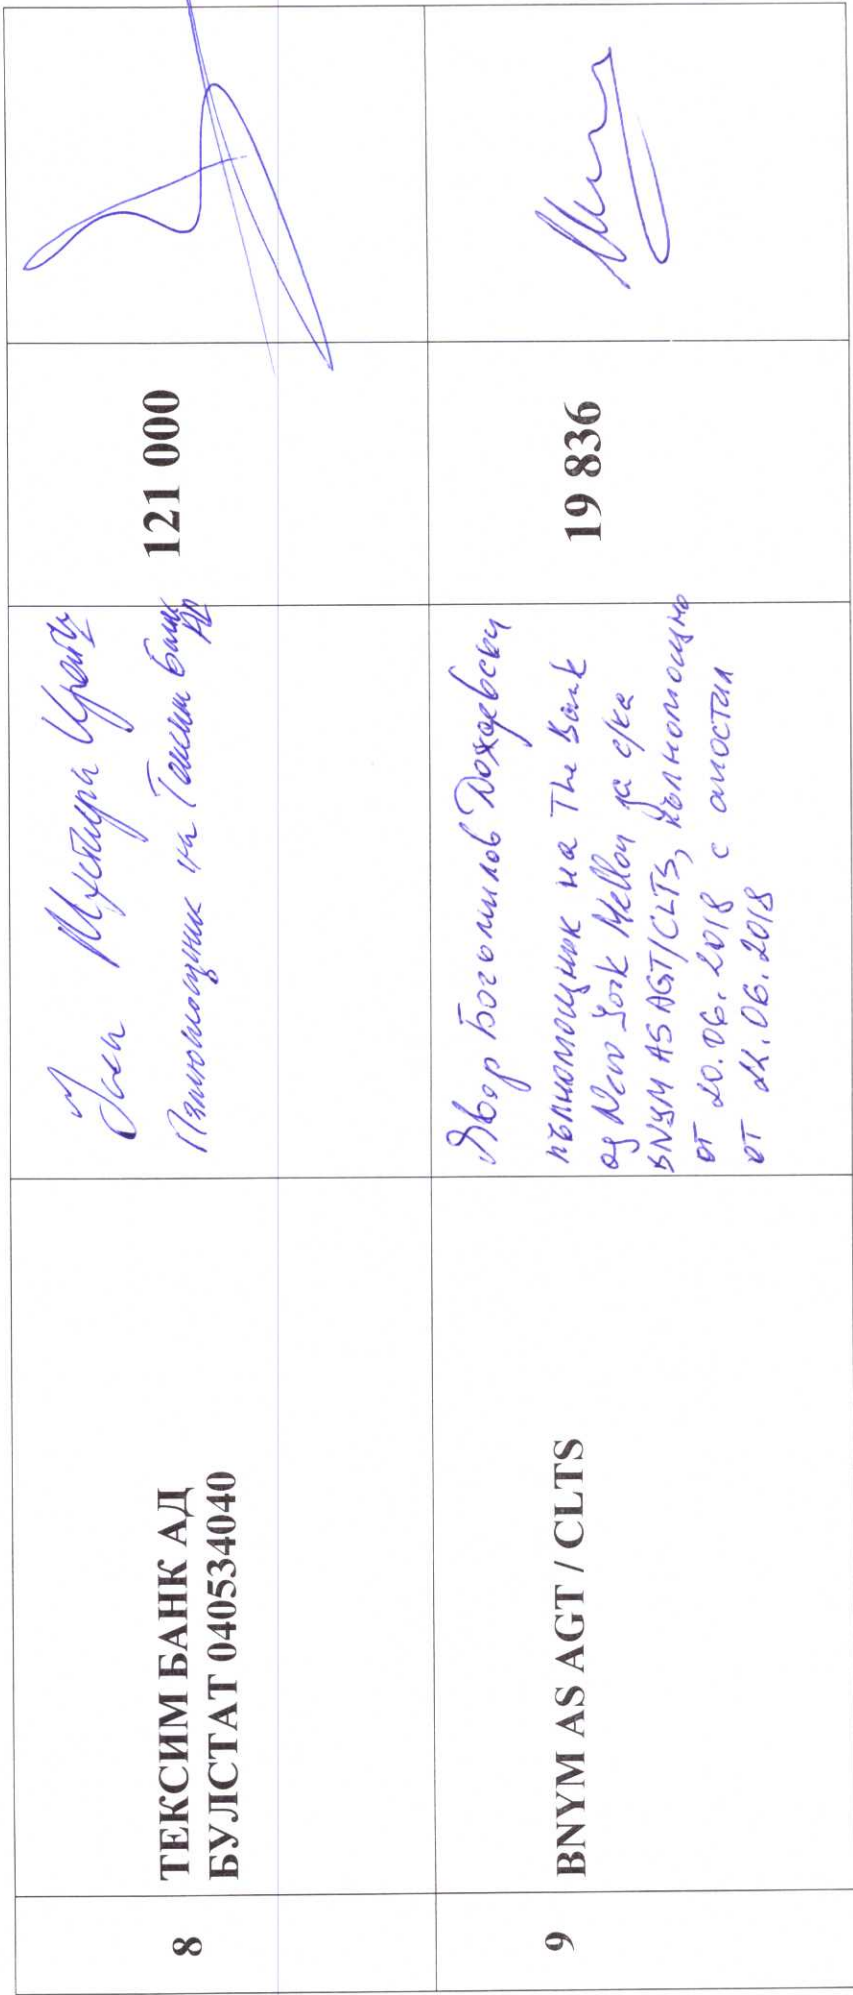 8
ТЕКСИМ БАНК АД
БУЛСТАТ 040534040
на Тексим Банк
АД
121 000
9
BNYM AS AGT / CLTS
Явор Богомилов Дождевски
пълномощник на The Bank
of New York Mellon за с/ка
BNYM AS AGT/CLTS, пълномощно
от 20.06.2018 с апостил
от 22.06.2018
19 836